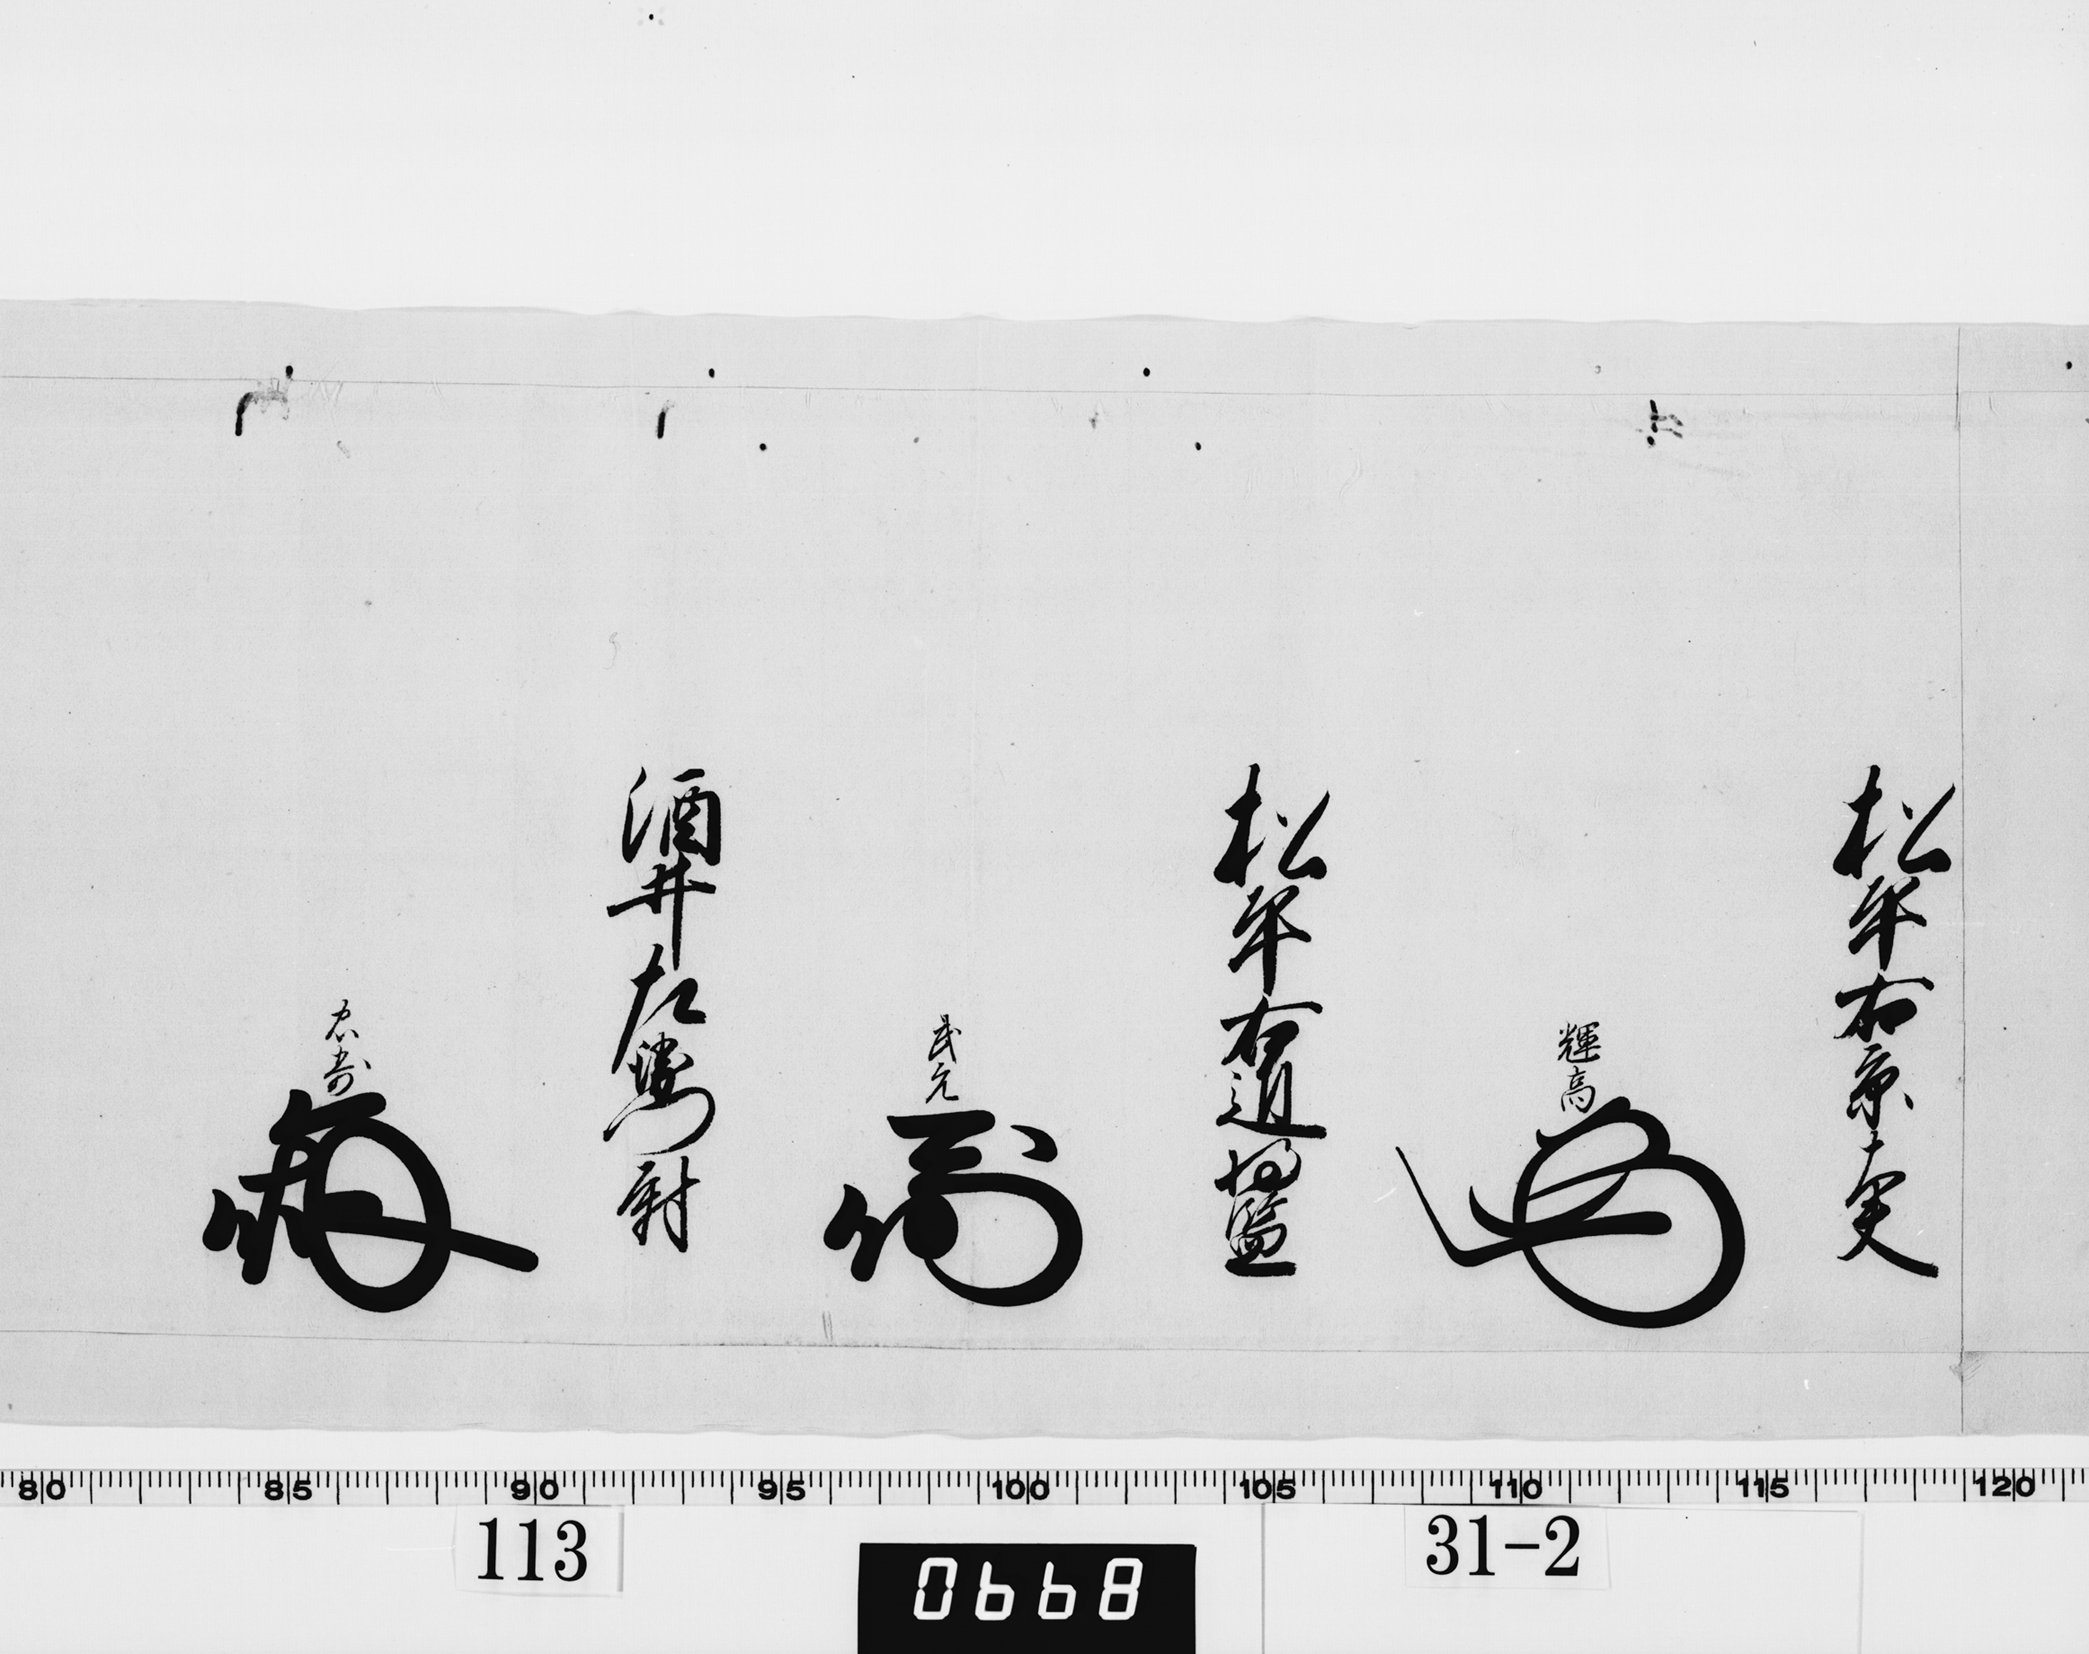 松平右京大夫
輝高
松平右近将監
武元
酒井左衛門尉
忠寄
80 85 90 95 100 105 110 115 120
113
0668
31-2